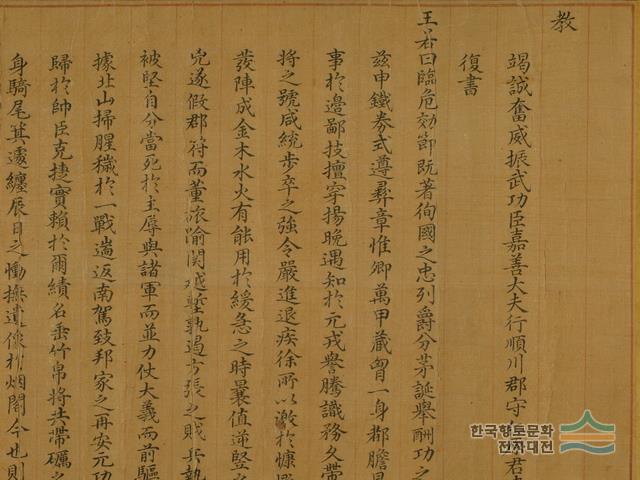 教
竭誠奮威振武功臣嘉善大夫行順川郡守
復書
王若曰臨危効節既著徇國之忠列爵分茅誕舉酬功之
玆申鐵券式遵彛章惟卿萬甲藏胷一身都膽
事於邊鄙技擅穿揚晚遇知於元戎譽騰識務久帶
將之號咸統步卒之強令嚴進退疾徐所以激於慷
發陣成金木水火有能用於緩急之時曩值逆豎
兇遂假郡符而董旅踰関越塹孰遏方張之賊兵執
被堅自分當死於主辱與諸軍而並力仗大義而前驅
據北山掃腥穢於一戰遄返南駕致邦家之再安元功
歸於帥臣克捷實賴於爾績名垂竹帛將共帶礪之
身騎尾箕遽纏辰日之慟撫遺像於烟閣今也則
한국향토문화
전자대전